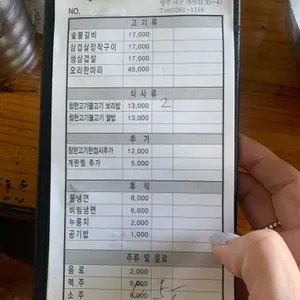 NO.
고 기 류
숯불갈비 17,000
삼겹살장작구이 17,000
생삼겹살 17,000
오리한마리 45,000
식 사 류
참한고기불고기 보리밥 13,000 2
참한고기불고기 쌀밥 13,000
추 가
참한고기한접시추가 12,000
계란찜 추가 5,000
후 식
물냉면 6,000
비빔냉면 6,000
누룽지 2,000
공기밥 1,000
주류 및 음료
음료 2,000
맥주
소주